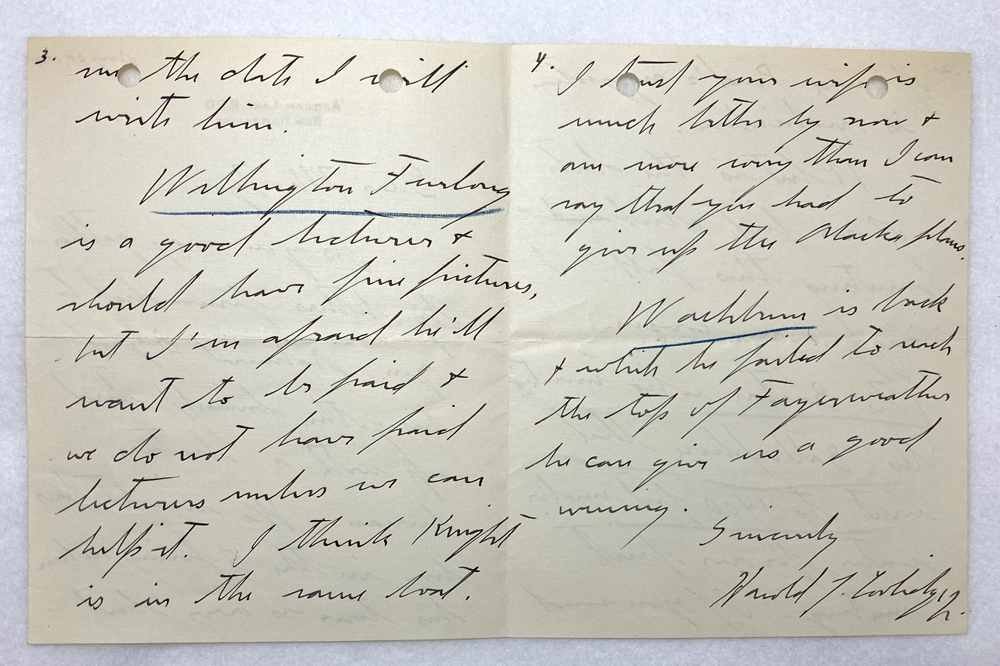 3.
me the date I will
write him.
Wellington Furlong
is a good lecturer &
should have fine pictures,
but I'm afraid he'll
want to be paid &
we do not have paid
lecturers unless we can
help it. I think Knight
is in the same boat.
4.
I trust your wife is
much better by now &
am more sorry than I can
say that you had to
give up the Alaska plans.
Washburn is back
& while he failed to reach
the top of Fayerweather
he can give us a good
evening.
Sincerely
Harold J. Coolidge Jr.